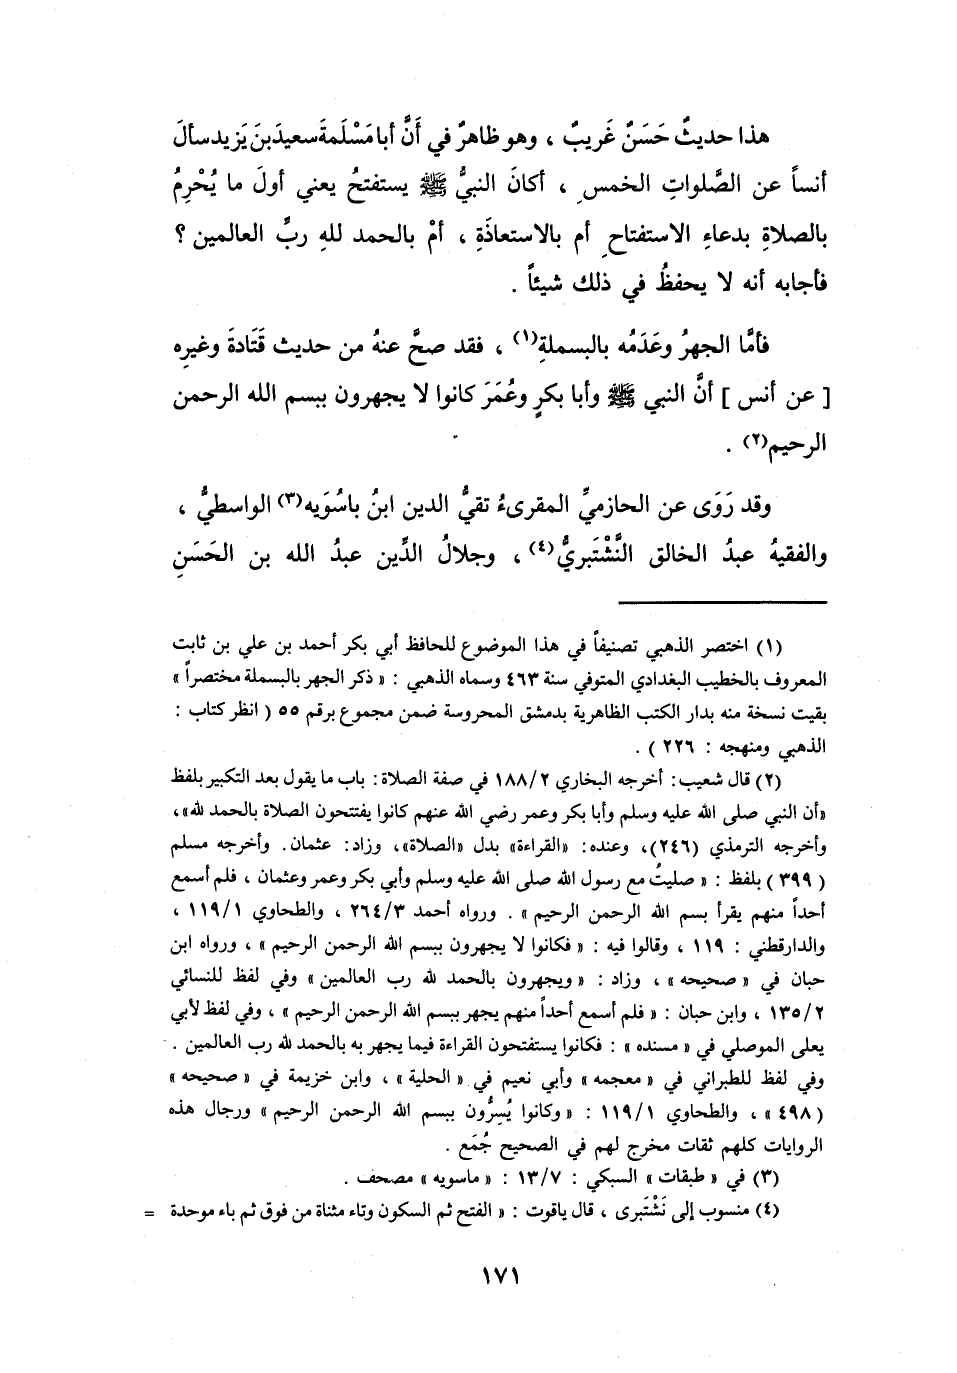 هذا حديثٌ حَسَنٌ غَريبٌ ، وهو ظاهرٌ في أَنَّ أبا مَسْلَمةَ سعيدَ بنَ يَزيد سألَ
أنساً عن الصَّلواتِ الخمسِ ، أكانَ النبيُّ ﷺ يستفتحُ يعني أولَ ما يُحْرِمُ
بالصلاةِ بدعاءِ الاستفتاحِ أم بالاستعاذَةِ ، أمْ بالحمد للهِ ربِّ العالمين ؟
فأجابه أنه لا يحفظُ في ذلك شيئاً .
فأمَّا الجهرُ وعَدَمُه بالبسملةِ(١) ، فقد صحَّ عنهُ من حديث قَتَادةَ وغيرِه
[ عن أنس ] أنَّ النبي ﷺ وأبا بكرٍ وعُمَرَ كانوا لا يجهرون ببسم الله الرحمن
الرحيم(٢) .
وقد رَوَى عن الحازميِّ المقرىءُ تقيُّ الدين ابنُ باسُوَيه(٣) الواسطيُّ ،
والفقيهُ عبدُ الخالق النَّشْتَبريُّ(٤) ، وجلالُ الدِّين عبدُ الله بن الحَسَنِ
(١) اختصر الذهبي تصنيفاً في هذا الموضوع للحافظ أبي بكر أحمد بن علي بن ثابت
المعروف بالخطيب البغدادي المتوفي سنة ٤٦٣ وسماه الذهبي : « ذكر الجهر بالبسملة مختصراً »
بقيت نسخة منه بدار الكتب الظاهرية بدمشق المحروسة ضمن مجموع برقم ٥٥ ( انظر كتاب :
الذهبي ومنهجه : ٢٢٦ ) .
(٢) قال شعيب: أخرجه البخاري ١٨٨/٢ في صفة الصلاة: باب ما يقول بعد التكبير بلفظ
«أن النبي صلى الله عليه وسلم وأبا بكر وعمر رضي الله عنهم كانوا يفتتحون الصلاة بالحمد لله»،
وأخرجه الترمذي (٢٤٦)، وعنده: «القراءة» بدل «الصلاة»، وزاد: عثمان. وأخرجه مسلم
( ٣٩٩ ) بلفظ : « صليتُ مع رسول الله صلى الله عليه وسلم وأبي بكر وعمر وعثمان ، فلم أسمع
أحداً منهم يقرأ بسم الله الرحمن الرحيم » . ورواه أحمد ٢٦٤/٣ ، والطحاوي ١١٩/١ ،
والدارقطني : ١١٩ ، وقالوا فيه : « فكانوا لا يجهرون ببسم الله الرحمن الرحيم » ، ورواه ابن
حبان في « صحيحه » ، وزاد : « ويجهرون بالحمد لله رب العالمين » وفي لفظ للنسائي
١٣٥/٢ ، وابن حبان : « فلم أسمع أحداً منهم يجهر ببسم الله الرحمن الرحيم » ، وفي لفظ لأبي
يعلى الموصلي في « مسنده » : فكانوا يستفتحون القراءة فيما يجهر به بالحمد لله رب العالمين .
وفي لفظ للطبراني في « معجمه » وأبي نعيم في « الحلية » ، وابن خزيمة في « صحيحه »
( ٤٩٨ » ، والطحاوي ١١٩/١ : « وكانوا يُسِرُّون ببسم الله الرحمن الرحيم » ورجال هذه
الروايات كلهم ثقات مخرج لهم في الصحيح جُمَع .
(٣) في « طبقات » السبكي : ١٣/٧ : « ماسويه » مصحف .
(٤) منسوب إلى نَشْتَبرى ، قال ياقوت : « الفتح ثم السكون وتاء مثناة من فوق ثم باء موحدة =
١٧١